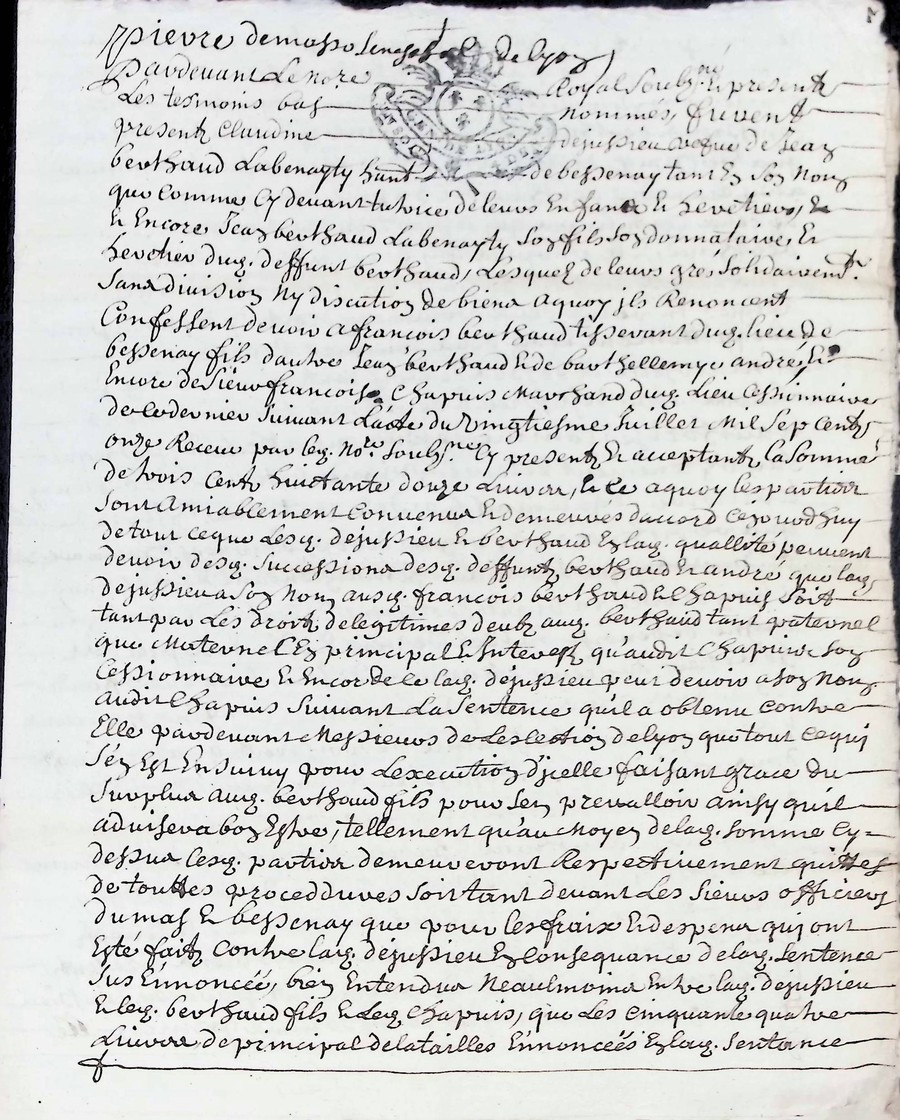 pierre demasso senechal de lyon
Pardevant Le no.re Royal Soubz.né et presentz
Les tesmoins bas nommés, furent
presentz Claudine dejussieu vefve de Jean
berthaud Labenasty de bessenay tant En Son Nom
que comme Cy devant tutrice de leurs Enfans et herétiers,
et Encore Jean berthaud Labenasty Son fils Son donnataire, Et
heretier dug. deffunt berthaud, Lesquelz de leurs grés Solidairement
Sans division Ny discution de biens aquoy jls Renoncent
Confessent devoir a françois berthaud tisserant dug. lieu de
bessenay fils dautre Jean berthaud et de barthellemye andré, Et
Encore de Sieur françois Chapuis Marchand dug. Lieu Cessionnaire
de ce dernier Suivant L'acte du Vingtiesme Juillet Mil Sep Centz
onze Receu par leg. No.re Soubz.né Cy presentz et acceptantz la Somme
de trois Centz huictante douze Livres, et ce aquoy les parties
Sont Amiablement Convenus et demeurés daccord Cejourdhuy
de tout ceque Lesg. dejussieu et berthaud En lag. quallité peuvent
devoir desg. Successions desg. deffuntz berthaud et andré que lag.
dejussieu a Son Nom ausg. françois berthaud et Chapuis Soit
tant par Les droitz de legitimes deubz aug. berthaud tant paternel
que Maternel En principal et Interestz qu'audit Chapuis Son
Cessionnaire et Encor de ce lag. dejussieu peut devoir a Son Nom
audit Chapuis Suivant La Sentence qu'il a obtenu contre
Elle pardevant Messieurs de Leslection de lyon que tout ce qui
S'en Est Ensuivy pour Lexecution d'jcelle faisant grace du
Surplus aug. berthaud fils pour Sen prevalloir ainsy qu'il
advisera bon Estre, tellement qu'au Moyen de lag. Somme Cy=
dessus Lesg. parties demeureront Respectivement quittes
de touttes procedures Soit tant devant Les Sieurs officiers
dumas et bessenay que pour les fraix et despens qui ont
Esté faitz Contre lag. dejussieu En Consequance de lag. Sentence
Sus Ennoncéé, bien Entendu Neaulmoins Entre lag. dejussieu
et leg. berthaud fils et leg. Chapuis, que Les Cinquante quatre
Livres de principal de la tailles Ennoncéés En lag. Sentance